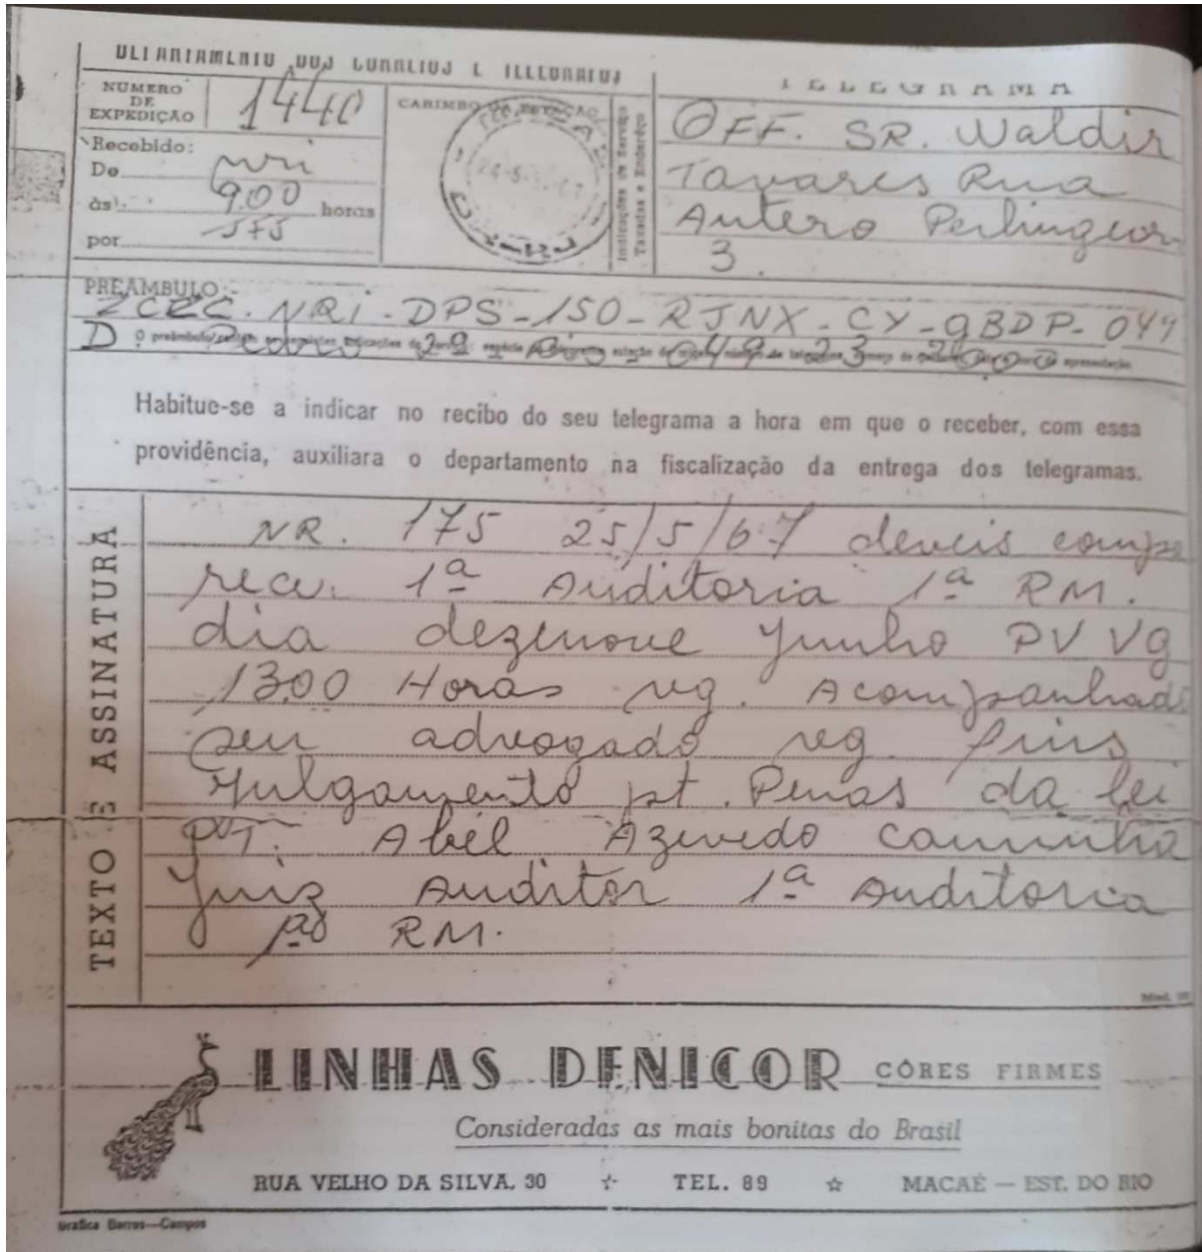 TELEGRAMA
NUMERO
DE
EXPEDIÇÃO
1440
Recebido:
De nri
às 900 horas
por 575
CARIMBO DA ESTAÇÃO
Indicações de Serviço
Taxadas e Enderêço
OFF. SR. Waldir
Tavares Rua
Antero
3.
PREÂMBULO:
ZCZC. NRi - DPS - 150 - RJNX - CY - GBDP - 044
D
Habitue-se a indicar no recibo do seu telegrama a hora em que o receber, com essa
providência, auxiliara o departamento na fiscalização da entrega dos telegramas.
TEXTO E ASSINATURA
NR. 175 25/5/67 deveis compa
recer. 1ª Auditoria 1ª RM.
dia dezenove junho PV VG
1300 Horas vg. Acompanhado
seu advogado vg fins
julgamento pt. Penas da lei
PT. Abel Azevedo caminha
Juiz Auditor 1ª Auditoria
RM.
LINHAS DENICOR CÔRES FIRMES
Consideradas as mais bonitas do Brasil
RUA VELHO DA SILVA, 30 ☆ TEL. 89 ☆ MACAÉ — EST. DO RIO
Grafica Barros—Campos